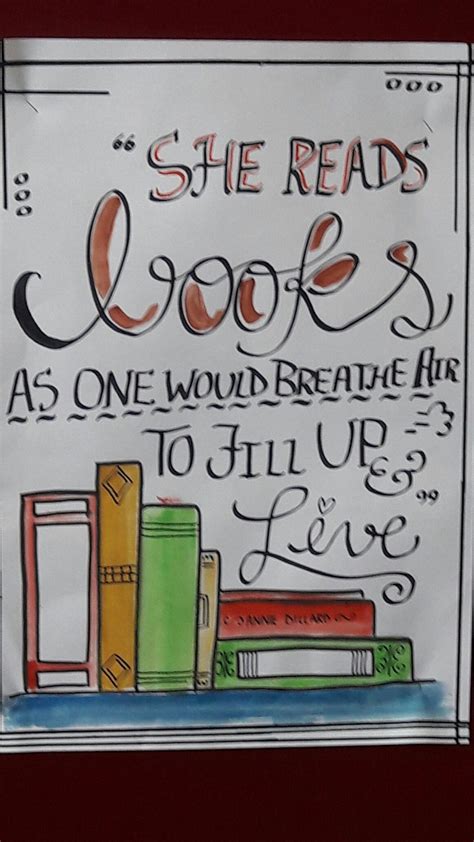 “SHE READS
books
AS ONE WOULD BREATHE AIR
TO FILL UP
& Live”
ANNIE DILLARD